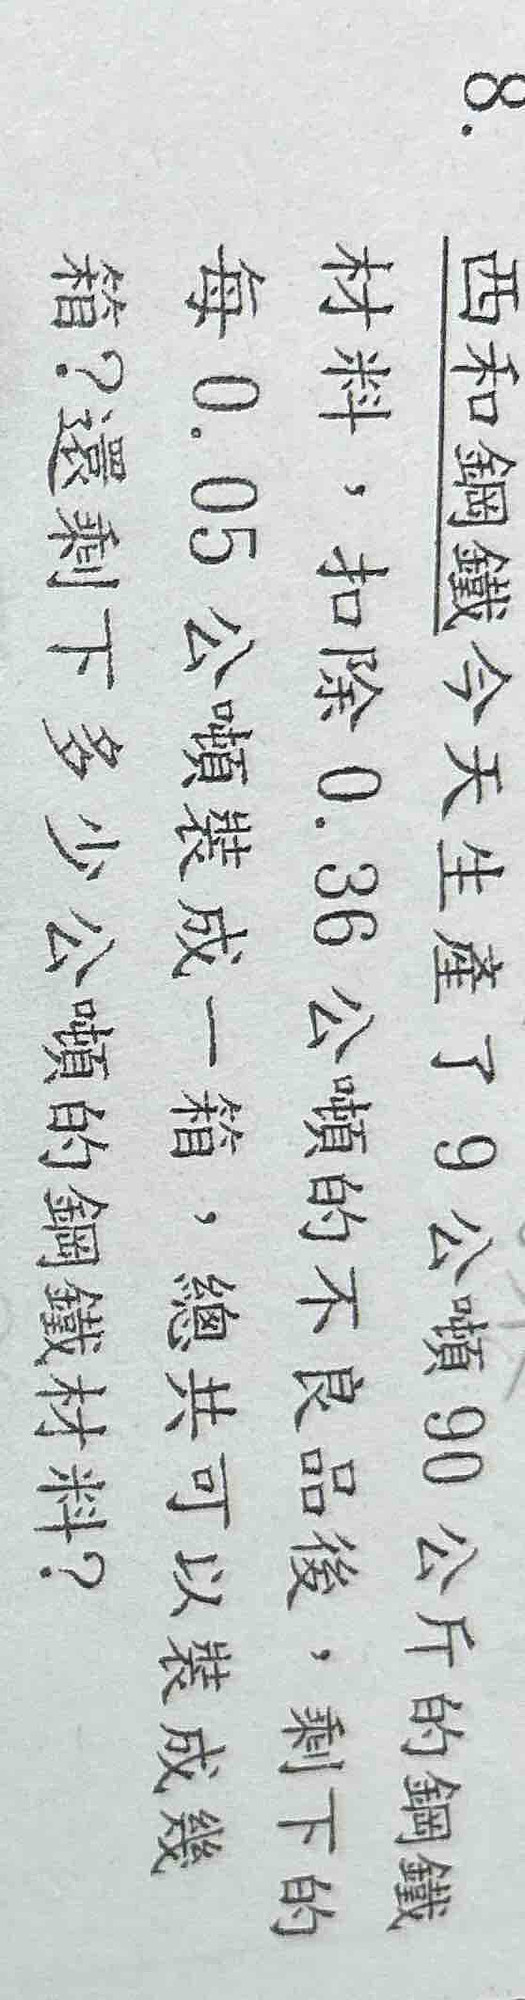 8. 西和鋼鐵今天生產了9公噸90公斤的鋼鐵
材料，扣除0.36公噸的不良品後，剩下的
每0.05公噸裝成一箱，總共可以裝成幾
箱？還剩下多少公噸的鋼鐵材料？